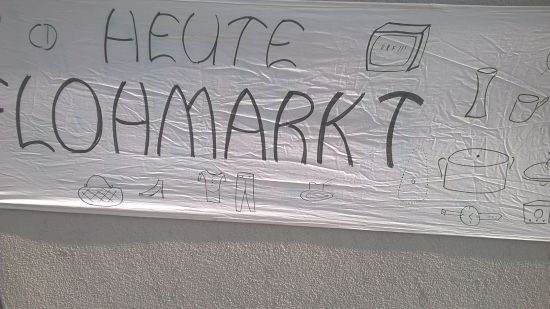 HEUTE
FLOHMARKT